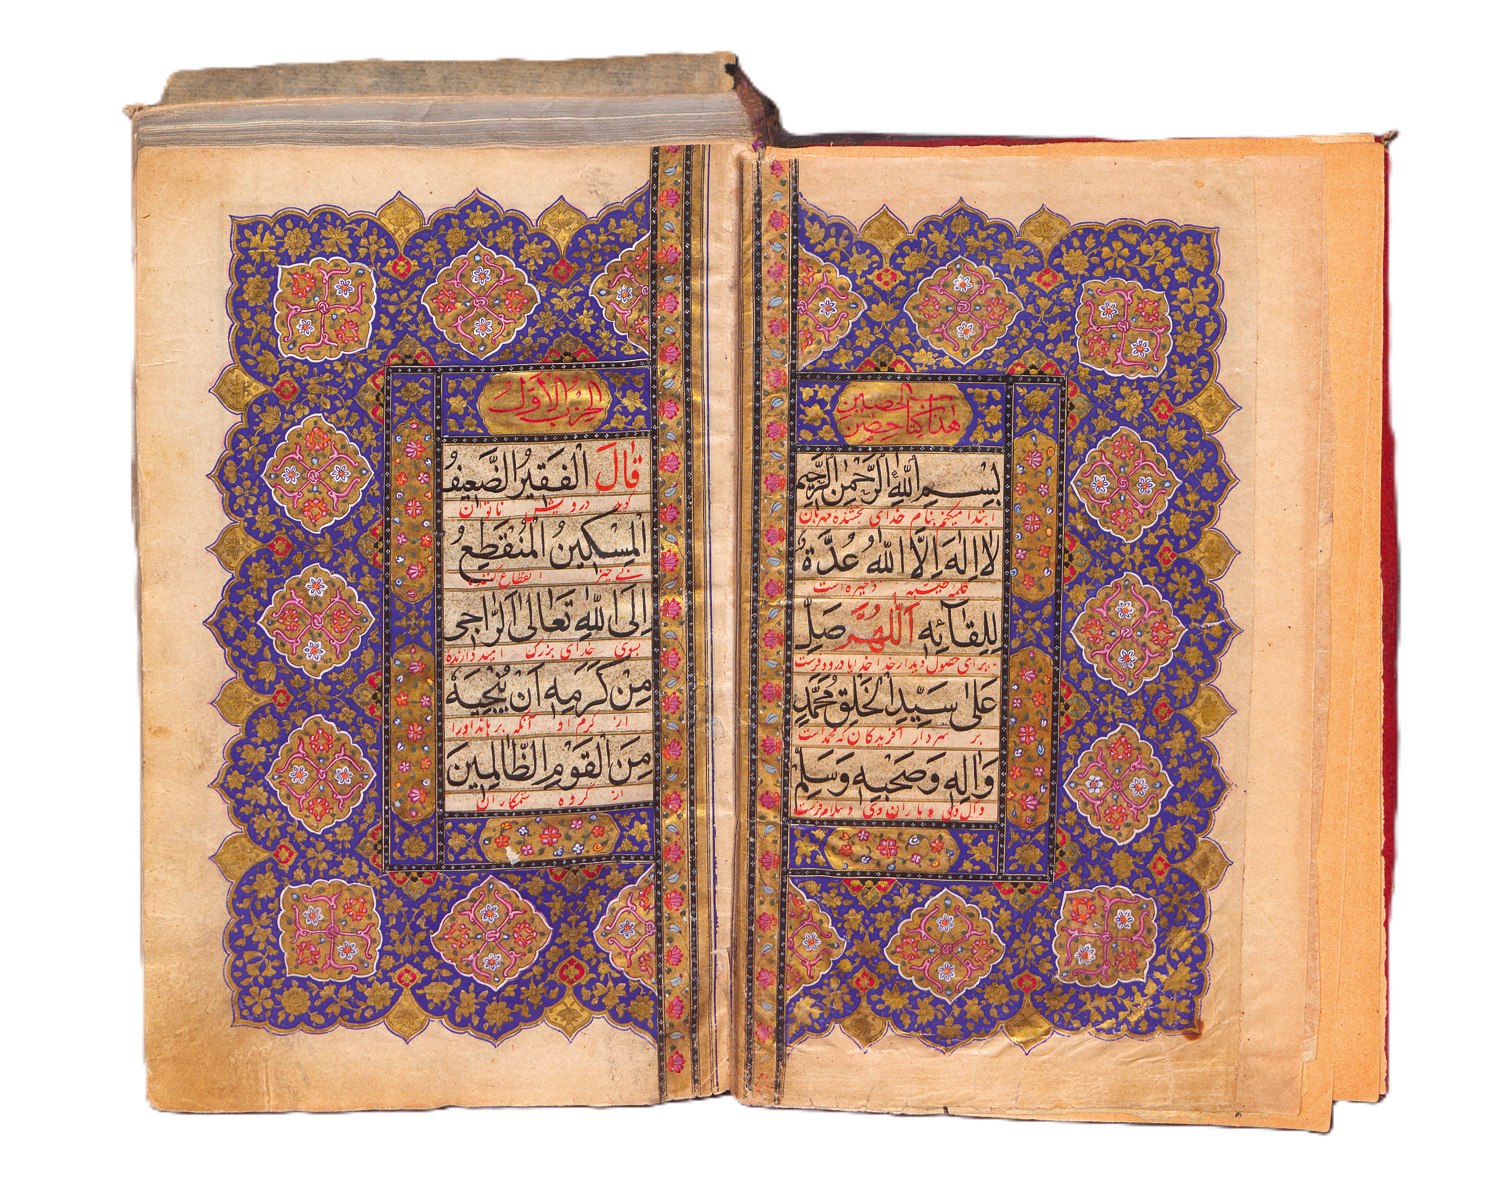 هذا كتاب حصن الحصين
بِسْمِ اللهِ الرَّحْمٰنِ الرَّحِيْمِ
ابتدا میکنم بنام خدای بخشنده مهربان
لَا اِلٰهَ اِلَّا اللهُ عُدَّةٌ
کلمه طیبه ذخیره است
لِلِقَآئِهٖ اَللّٰهُمَّ صَلِّ
برای حصول دیدار خدا خدایا درود فرست
عَلٰى سَيِّدِ الْخَلْقِ مُحَمَّدٍ
بر سردار آفریدگان که محمد است
وَاٰلِهٖ وَصَحْبِهٖ وَسَلِّمْ
وال وی و یاران وی و سلام فرست
الحِزْبُ الْأَوَّلُ
قَالَ الْفَقِيْرُ الضَّعِيْفُ
گوید درویش ناتوان
الْمِسْكِيْنُ الْمُنْقَطِعُ
بی چیز انقطاع کننده
اِلَى اللهِ تَعَالٰى الرَّاجِىْ
بسوی خدای بزرگ امید دارنده
مِنْ كَرَمِهٖ اَنْ يُنْجِيَهٗ
از کرم او آنکه برهاند اورا
مِنَ الْقَوْمِ الظَّالِمِيْنَ
از گروه ستمگاران